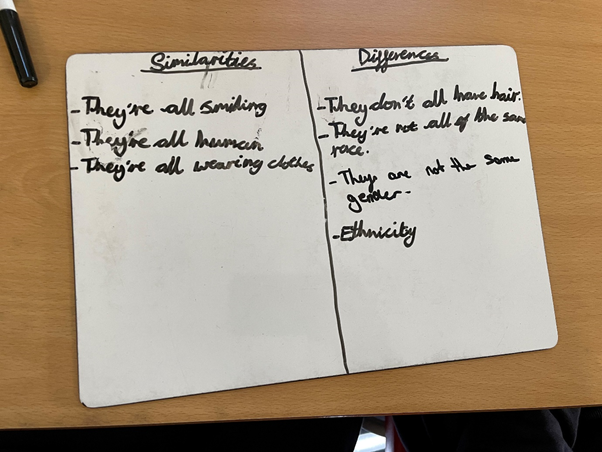 Similarities
- They're all smiling
- They're all human
- They're all wearing clothes
Differences
- They don't all have hair.
- They're not all of the same
race.
- They are not the same
gender-
- Ethnicity